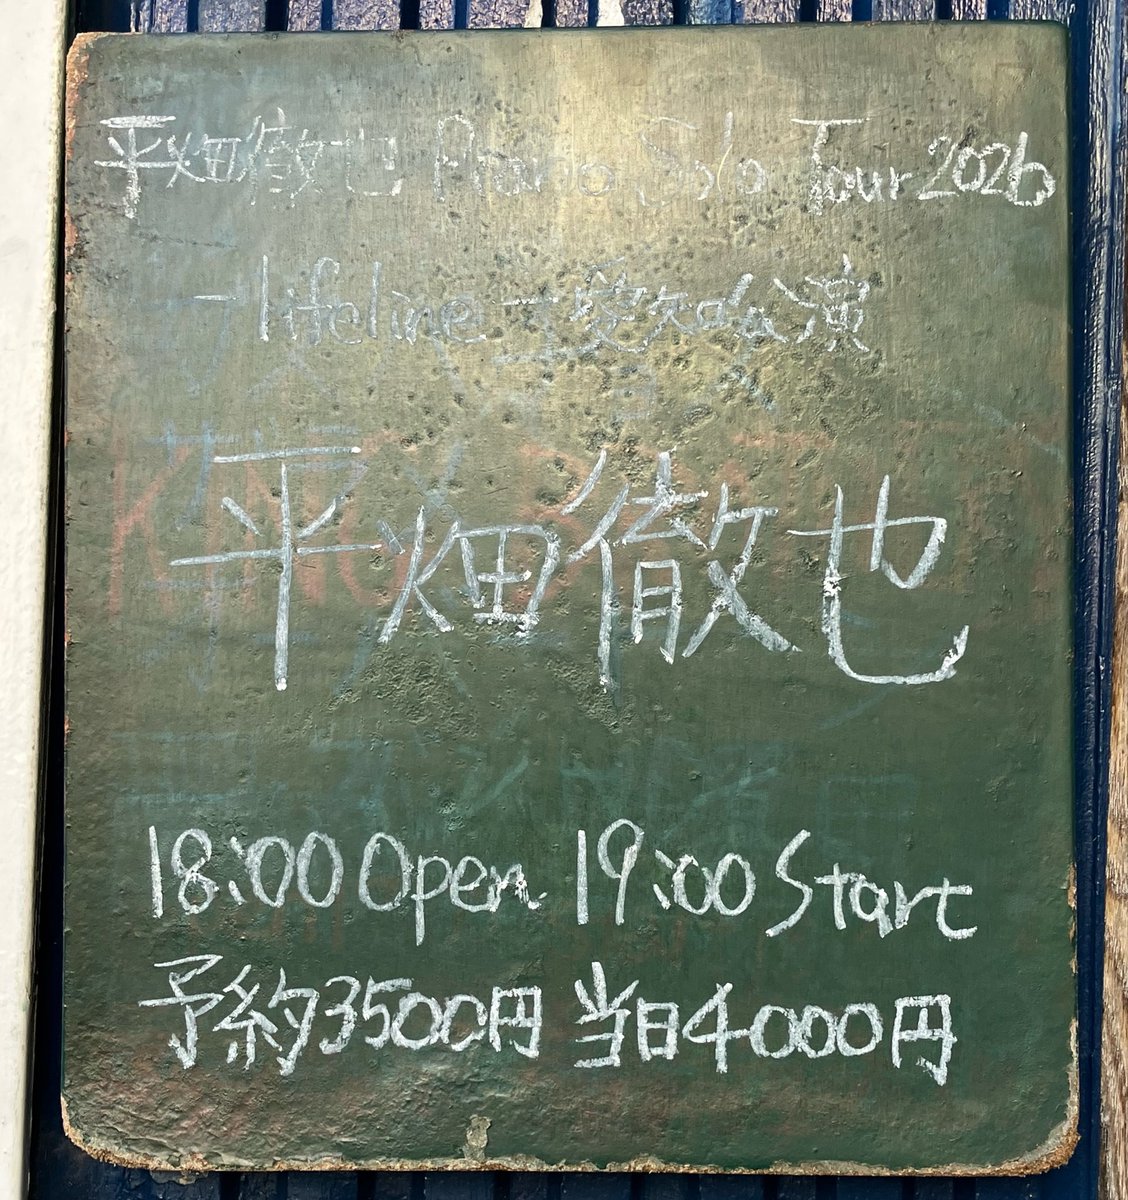 平畑徹也 Piano Solo Tour 2026
- lifeline - 愛知公演
平畑徹也
18:00 Open 19:00 Start
予約3500円 当日4000円